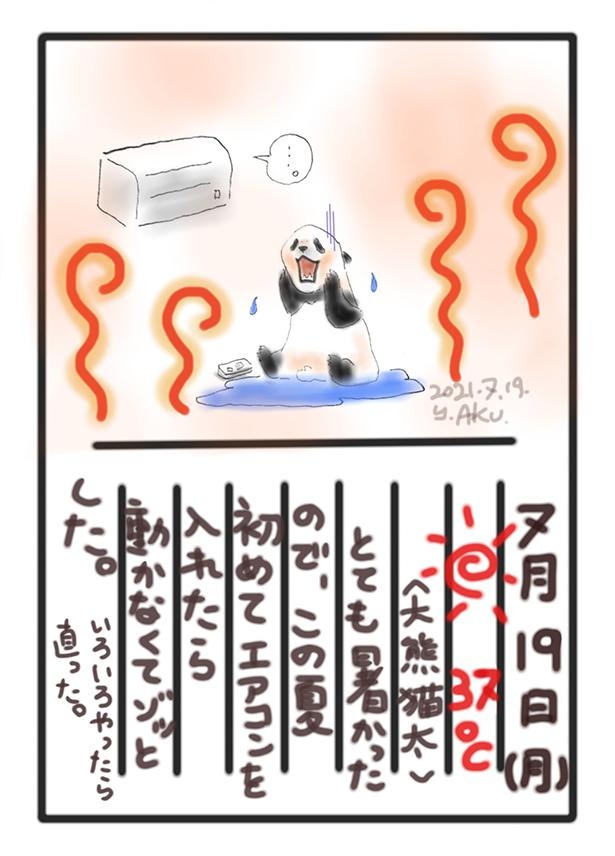 …。
2021.7.19.
y.AKU.
7月19日(月)
37℃
〈大熊猫太〉
とても暑かった
ので、この夏
初めてエアコンを
入れたら
動かなくてゾッと
した。
いろいろやったら
直った。